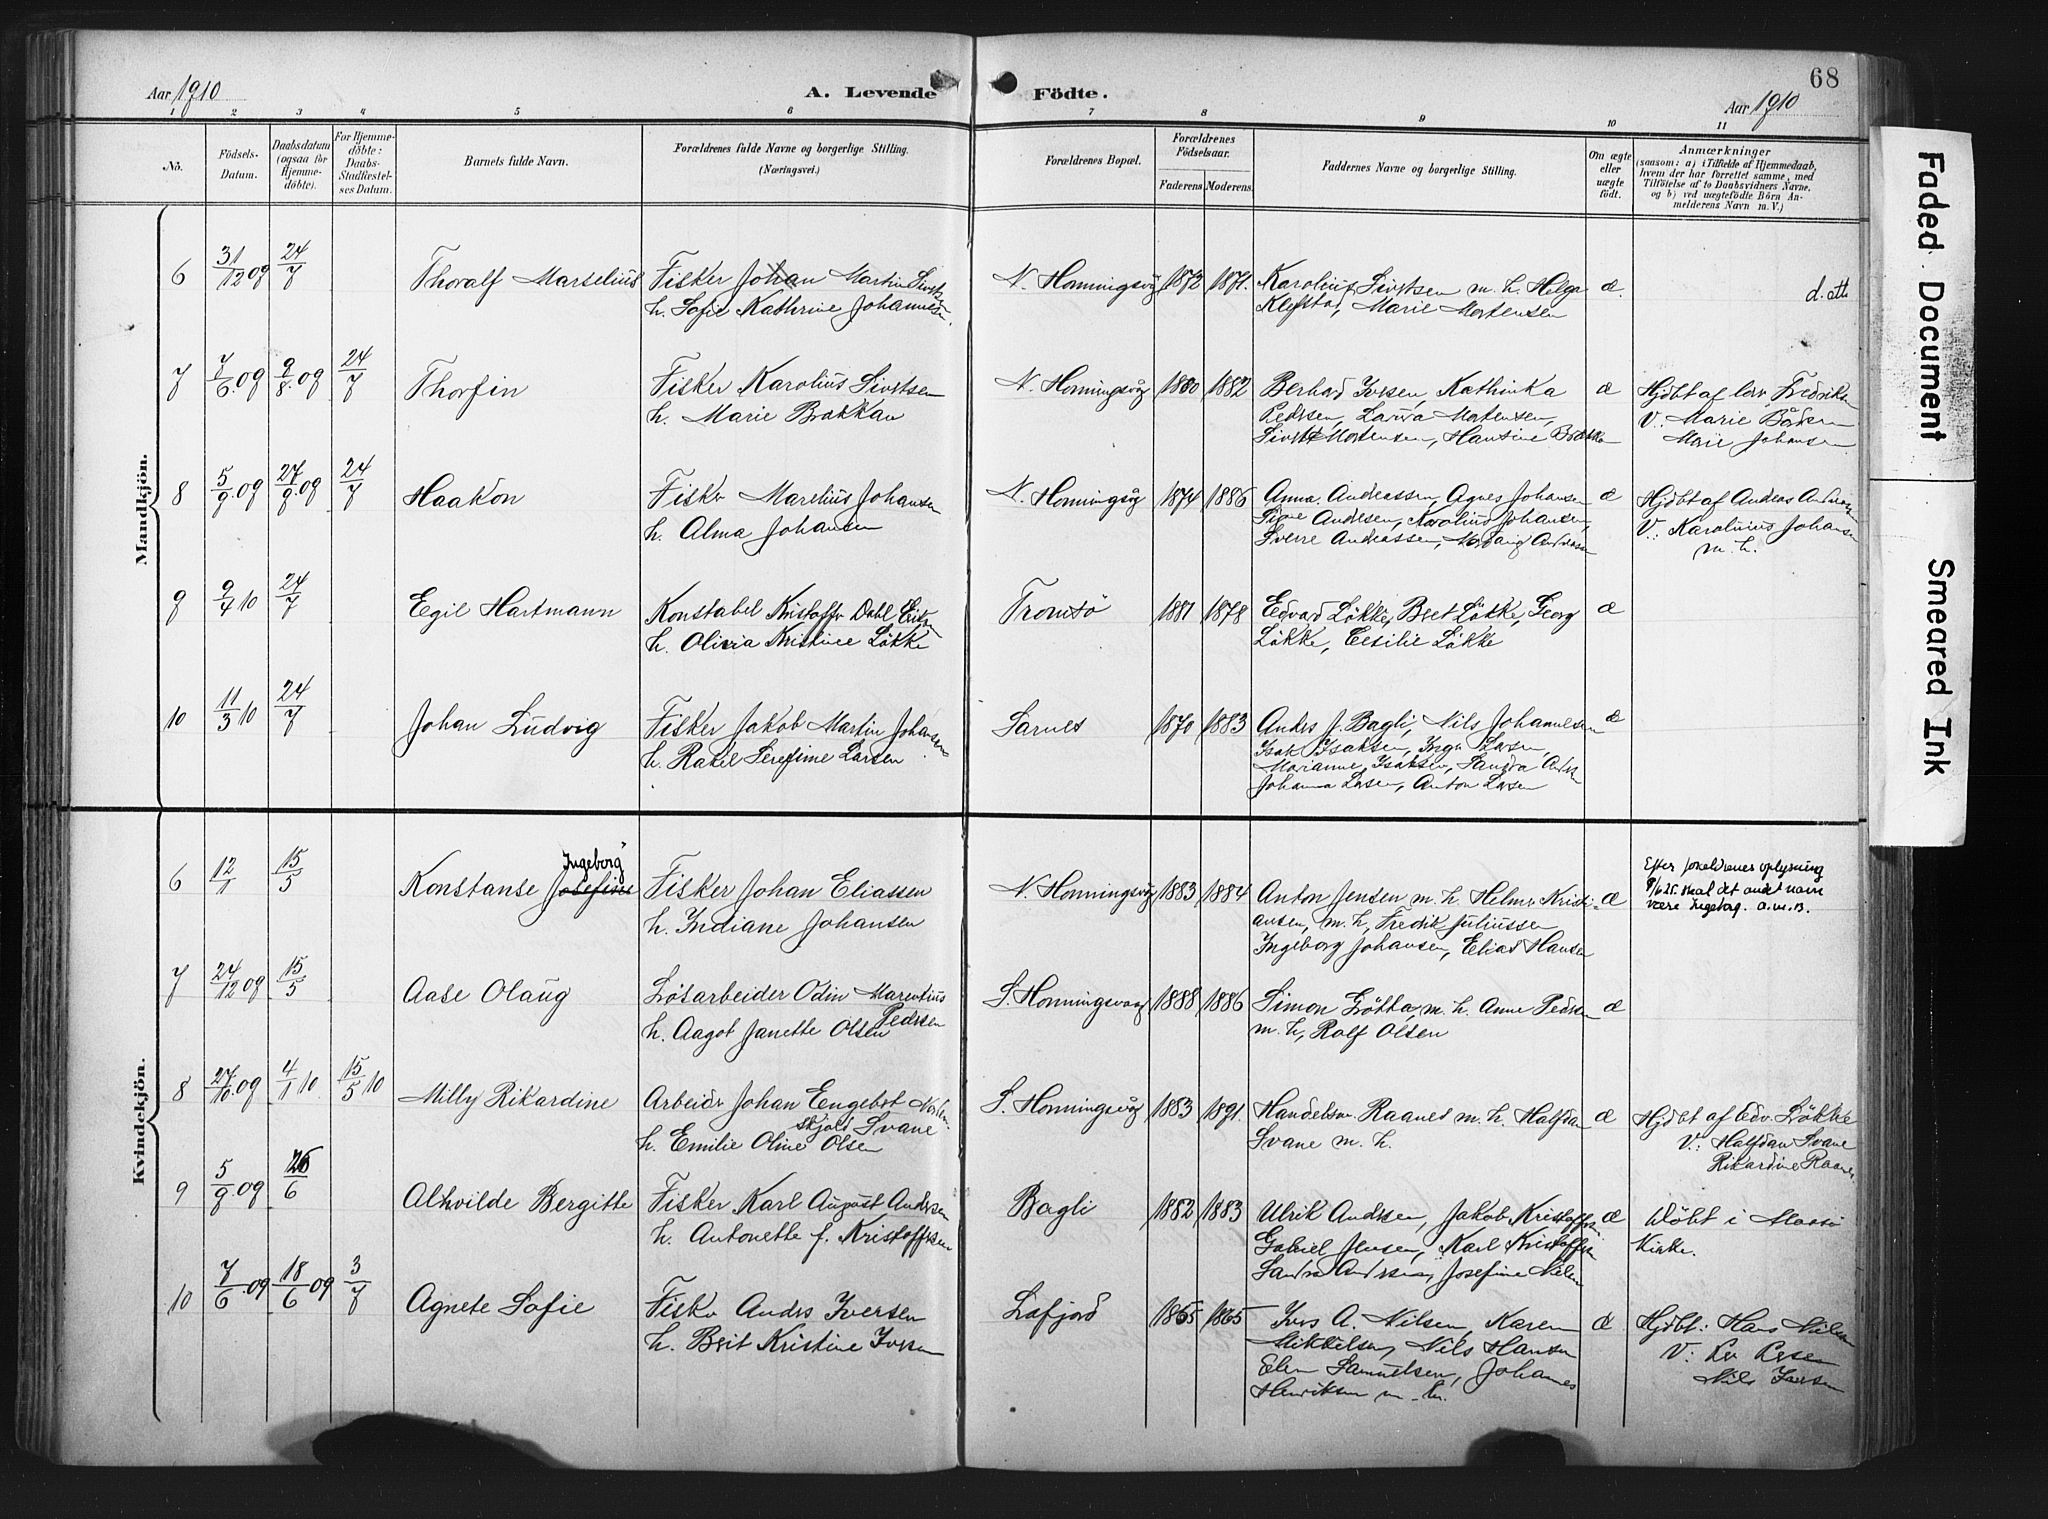 68
Aar 1910
A. Levende Födte.
Aar 1910
1 2 3 4 5 6 7 8 9 10 11
No.
Födsels-Datum.
Daabsdatum (ogsaa for Hjemmedöbte).
For Hjemmedöbte: Daabs-Stadfestelses Datum.
Barnets fulde Navn.
Forældrenes fulde Navne og borgerlige Stilling. (Næringsvei.)
Forældrenes Bopæl.
Forældrenes Födselsaar.
Faderens. Moderens.
Faddernes Navne og borgerlige Stilling.
Om ægte eller uægte födt.
Anmærkninger
(saasom: a) i Tilfælde af Hjemmedaab,
hvem der har forrettet samme, med
Tilföielse af to Daabsvidners Navne,
og b) ved uægtefödte Börn Anmelderens Navn m. V.)
Mandkjön.
6 31/12 09 24/7 Thoralf Marselius Fisker Johan Martin Sivertsen N. Honningsvåg 1872 1871. Karolius Sivertsen m. h. Helga æ.
h. Sofie Kathrine Johannesen. Klefstad, Marie Mortensen
d. att
7 7/6 09 9/8 09 24/7 Thorfin Fisker Karolius Sivertsen N. Honningsvåg 1880 1882 Berhard Iversen, Kathinka æ Hjdbt af Fredriksen
h. Marie Brakkan Pedersen, Laura Mortensen, V: Marie
Sivert Mortensen, Hansine Marie Johansen
8 5/9 09 27/9 09 24/7 Haakon Fisker Marelius Johansen N. Honningsvåg 1874 1886 Anna Andreassen, Agnes Johansen æ Hjdbt af Andreas
h. Alma Johansen Signe Andersen, Karolius Johansen, V: Karolinius Johansen
Sverre Andreassen, m. h.
9 9/4 10 24/7 Egil Hartmann Konstabel Kristoffer Dahl Eriksen Tromsö 1881 1878 Edvard Løkke, Beret Løkke, Georg æ
h. Olivia Kristine Løkke Løkke, Cecilie Løkke
10 11/3 10 24/7 Johan Ludvig Fisker Jakob Martin Johansen Sarnes 1870 1883 Anders J. Bagli, Nils Johannesen æ
h. Rakel Serefine Larsen Isak Isaksen, Inga Larsen,
Marianne Isaksen, Sandra
Johanna Larsen, Anton Larsen
Kvindekjön.
6 12/1 15/5 Konstanse Josefine Ingeborg Fisker Johan Eliassen N. Honningsvåg 1883 1884 Anton Jensen m. h. Helmer Kristi- æ
h. Indiane Johansen ansen, m. h, Fredrik Juliussen
Ingeborg Johansen, Elias Hansen
Efter forældrenes oplysning
9/6 25 skal det andet navn
være Ingeborg. A.M.B.
7 24/12 09 15/5 Aase Olaug Løsarbeider Odin Marentius Pedersen S. Honningsvaag 1888 1886 Simon Grøtta, m. h. Anne Pedersen æ
h. Aagot Janette Olsen m. h, Rolf Olsen
8 27/10 09 4/1 10 15/5 10 Milly Rikardine Arbeider Johan Engebrt S. Honningsvåg 1883 1891. Handelsm. Raanes m. h. Halfdan æ Hjdbt af Edv. Løkke
skjold Svane Svane m. h. V: Halfdan Svane
h. Emilie Oline Olsen Rikardine Raanes
9 5/9 09 26/6 Alhvilde Bergitte Fisker Karl August Andersen Bagli 1882 1883 Ulrik Andersen, Jakob Kristoffersen æ Döbt i Maasö
h. Antonette f. Kristoffersen Gabriel Jensen, Karl Kristoffersen Kirke.
Sandra Andersen, Josefine Nilsen
10 7/6 09 18/6 09 3/7 Agnete Sofie Fisker Anders Iversen Lafjord 1865 1865 Ivers A. Nilsen, Karen æ Hjdbt: Hans Nilsen
h. Berit Kristine Iversen Mikkelsen, Nils Hansen V:
Elen Samuelsen, Johannes Nils Iversen
Henriksen m. h.
Faded Document
Smeared Ink